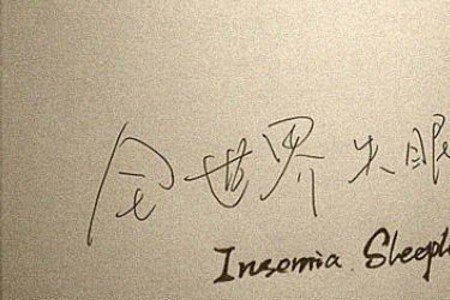 全世界失眠
Insomia Sleepl